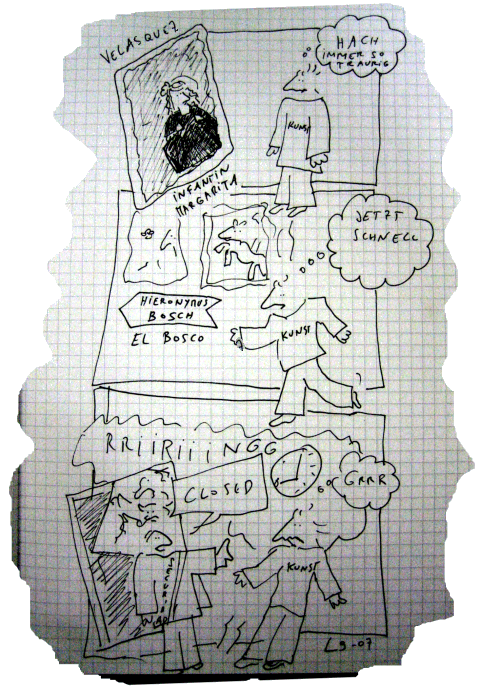 VELASQUEZ
HACH
IMMER SO
TRAURIG
KUNST
INFANTIN
MARGARITA
JETZT
SCHNELL
HIERONYMUS
BOSCH
EL BOSCO
KUNST
RRiiRiiiNGG
CLOSED
GRRR
KUNST
L9-07